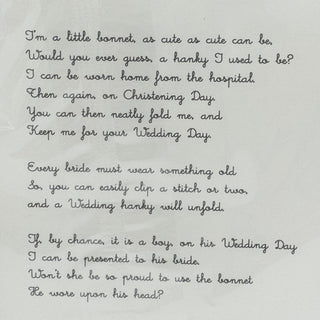 I'm a little bonnet, as cute as cute can be,
Would you ever guess, a hanky I used to be?
I can be worn home from the hospital,
Then again, on Christening Day,
You can then neatly fold me, and
Keep me for your Wedding Day.
Every bride must wear something old
So, you can easily clip a stitch or two,
and a Wedding hanky will unfold.
If, by chance, it is a boy, on his Wedding Day
I can be presented to his bride.
Won't she be so proud to use the bonnet
He wore upon his head?